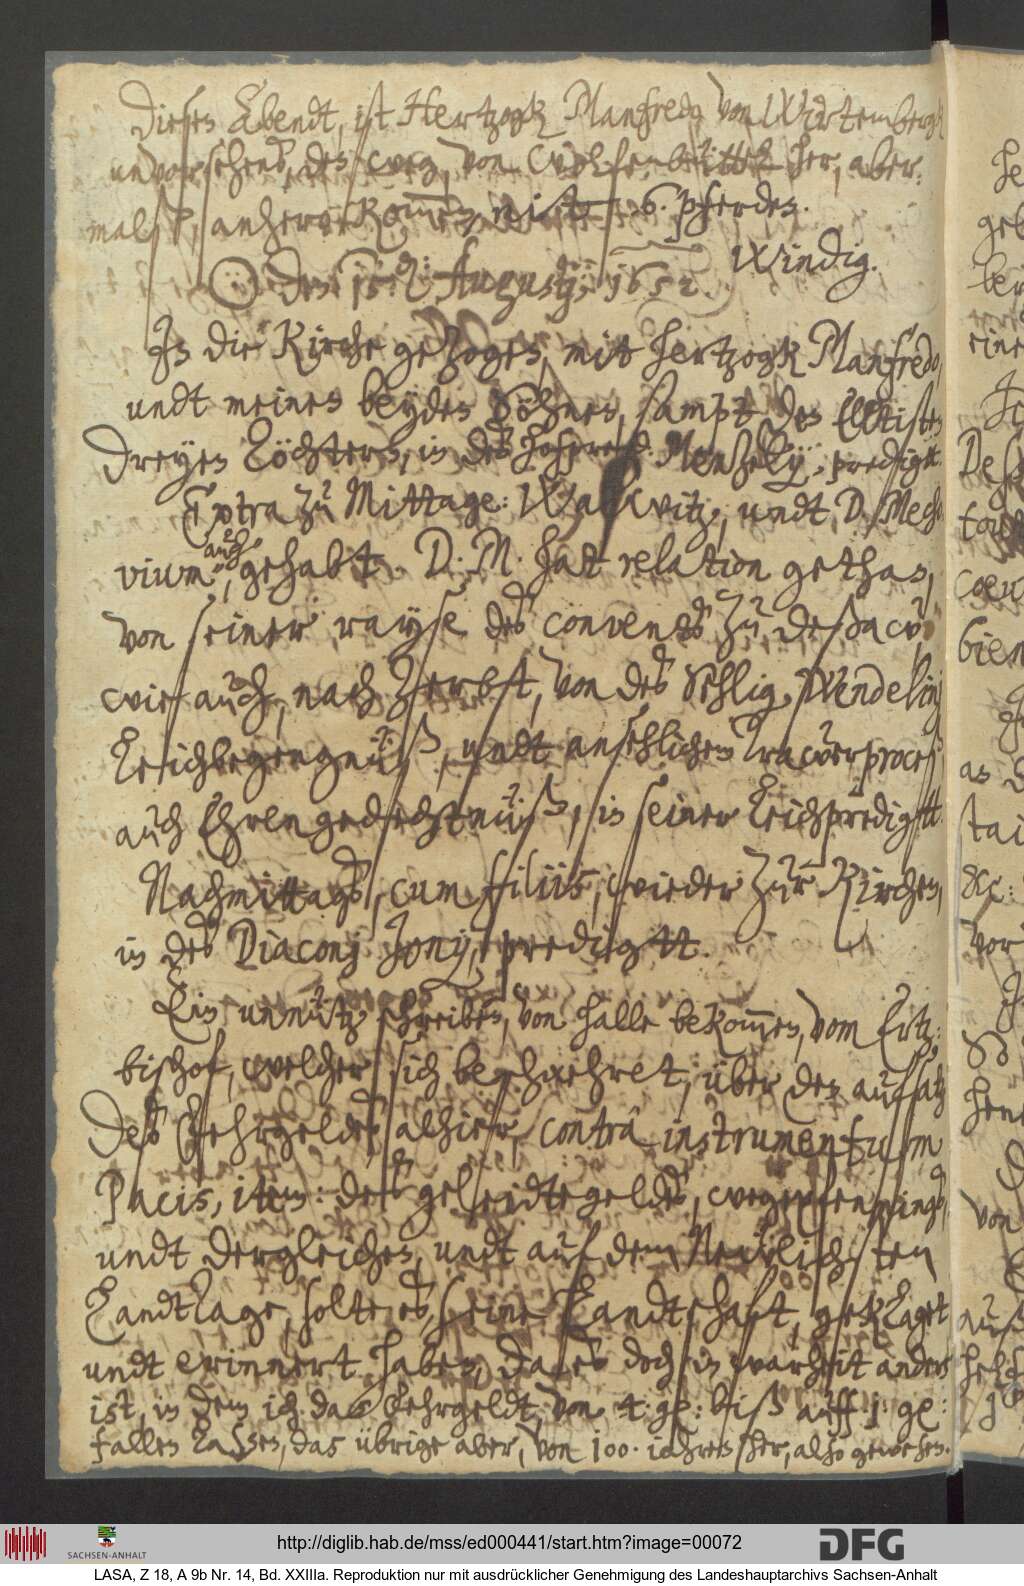 Diesen Abendt, ist Hertzogk Manfredo von Wirtembergk
unvorsehens, des weg, von Wolfenbüttel her, aber¦
malß, anhero kommen, mit 6. pferden.
Windig.
☉ den 15. Augustj, 1652.
In die Kirche gezogen, mit hertzogk Manfredo,
undt meinen beyden Söhnen, sampt den Elltisten
dreyen Töchtern, in des hofpred. Menzelij, predigtt.
Extra zu Mittage: Wallwitz, undt, D. Mecho¦
auch
vium, gehabt. D. M. hat relation gethan,
von seiner rayse des convents zu Deßaw,
wie auch, nach Zerbst, von des Sehlig. Wendelinj
Leichbegengnüß, undt ansehlichen Trawerproceß
auch Ehrengedechtnüß, in seiner Leichpredigtt.
Nachmittags, cum filiis, wieder zur Kirchen,
in des Diaconj Jonij, predigtt.
Ein unnütz schreiben, von Halle bekommen, vom Ertz¦
bischof, welcher sich beschwehret, über den aufsatz
des Fehrgeldes alhier, contra instrumentum
Pacis, item: deß geleidtsgeldes, wegepfennings,
undt dergleichen, undt auf dem Neẅlichsten
Landttage, solte es, seine Landtschaft, geklaget
undt erinnert haben, da es doch in warheit anders
ist, in dem ich das Fehrgeldt, von 4. gr: biß auff 1. gr:
fallen laßen, das übrige aber, von 100. iahren her, also gewesen.
http://diglib.hab.de/mss/ed000441/start.htm?image=00072
DFG
SACHSEN-ANHALT
LASA, Z 18, A 9b Nr. 14, Bd. XXIIIa. Reproduktion nur mit ausdrücklicher Genehmigung des Landeshauptarchivs Sachsen-Anhalt